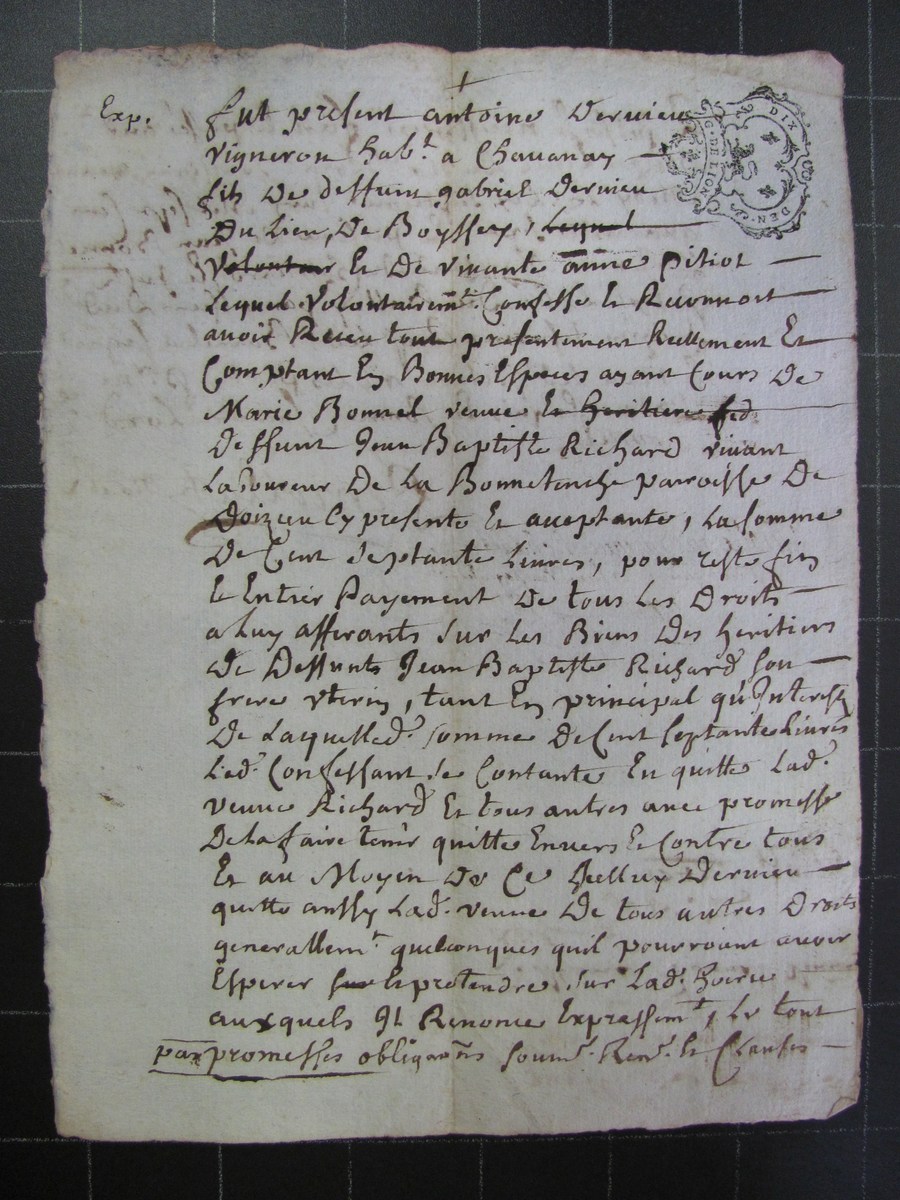 Exp.
fut present antoine Dervieu
vigneron hab.t a Chavanay
fils De deffunt gabriel Dervieu
Du Lieu, De Boyssey, Lequel
Volontair Et De vivante anne Pitiot
Lequel Volontairem.t Confesse Et Reconnoit
avoir Receu tout presentement Reellement Et
Comptant En Bonnes Especes ayant Cours De
Marie Bonnel veuve Et heritiere fed
Deffunt Jean Baptiste Richard vivant
Laboureur De La Bonnetanche parroisse De
Doizieu Cy presente Et acceptante, La somme
De Cent Septante Livres, pour reste fin
Et Entier Payement De tous Les Droits
a Luy afferants Sur Les Biens Des heritiers
De Deffunts Jean Baptiste Richard Son
frere uterin, tant En principal qu'Interests
De Laquelled.e Somme De Cent Septante Livres
Led. Confessant Se Contante En quitte Lad.
veuve Richard Et tous autres avec promesse
De La faire tenir quitte Envers Et Contre tous
Et au Moyen De Ce Dervieu
quitte aussy Lad. veuve De tous autres Droits
generallem.t quelconques quil pourroient avoir
Esperer sur Et pretendre Sur Lad. hoirie
auxquels Il Renonce Expressem.t, Le tout
par promesses obliga.ns soum.s Ren.s Et Clauses
G. DE LION
DIX
DEN.